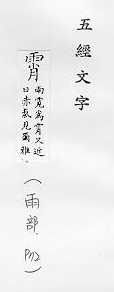 五經文字
霄
雨霓為霄又近
日赤氣見爾雅
(雨部 P72)